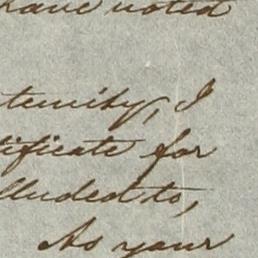 have noted
ternity, I
tificate for
lluded to,
As your